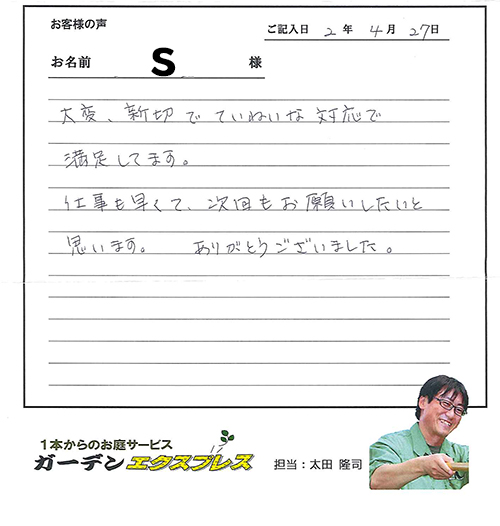 お客様の声
ご記入日 2 年 4 月 27 日
お名前 S 様
大変、新切でていねいな対応で
満足してます。
仕事も早くて、次回もお願いしたいと
思います。 ありがとうございました。
1本からのお庭サービス
ガーデンエクスプレス
担当：太田 隆司